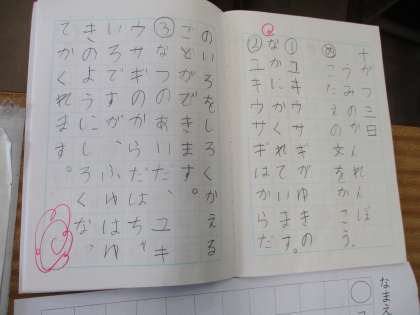 十がつ三日
うみのかくれんぼ
め こたえの文をかこう。
① ユキウサギがゆきの
なかにかくれています。
② ユキウサギはからだ
のいろをしろくかえる
ことができます。
③ なつのあいだ、ユキ
ウサギのからだは、ちゃ
いろですが、ふゆはゆ
きのようにしろくなっ
てかくれます。
なまえ